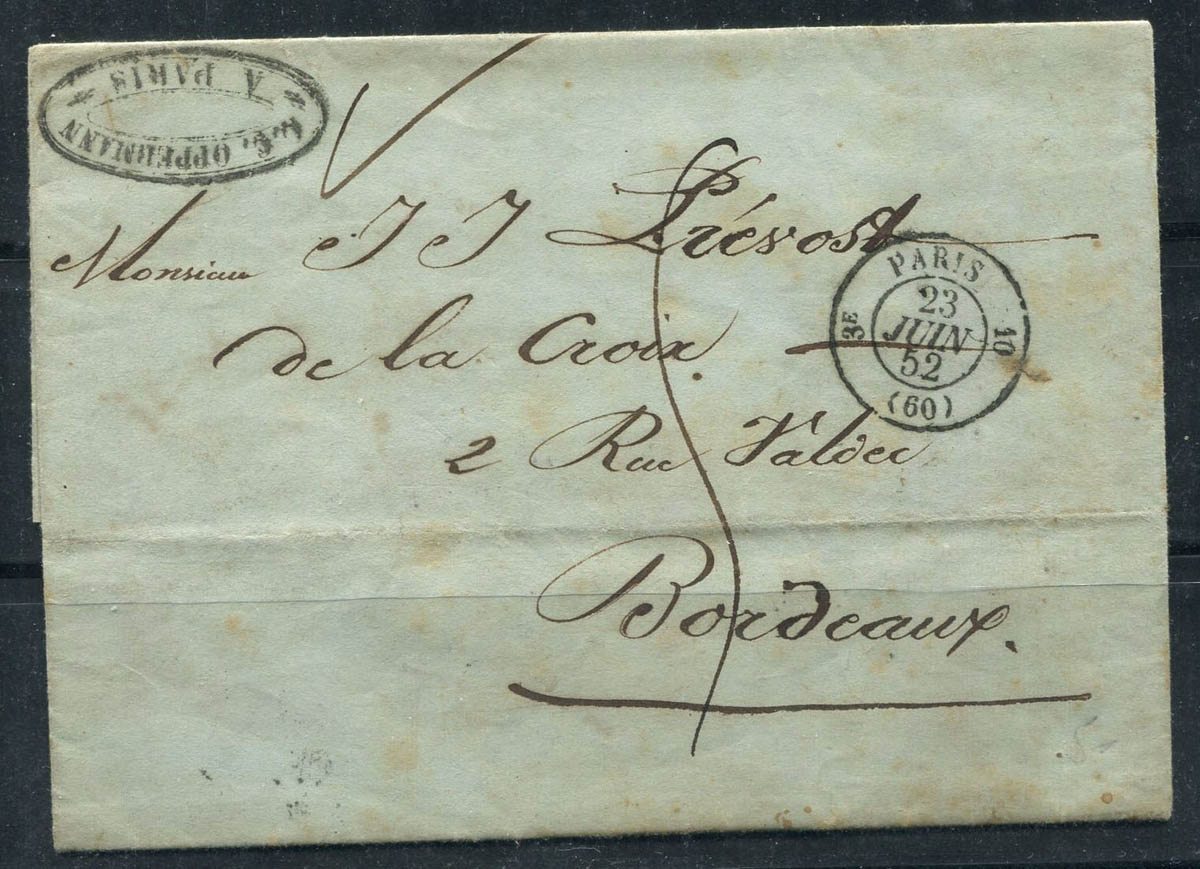 C. C. OPPERMANN
A PARIS
Monsieur J J Prévost
de la Croix
2 Rue Valdec
Bordeaux.
PARIS
3E
23
JUIN
52
10
(60)
5